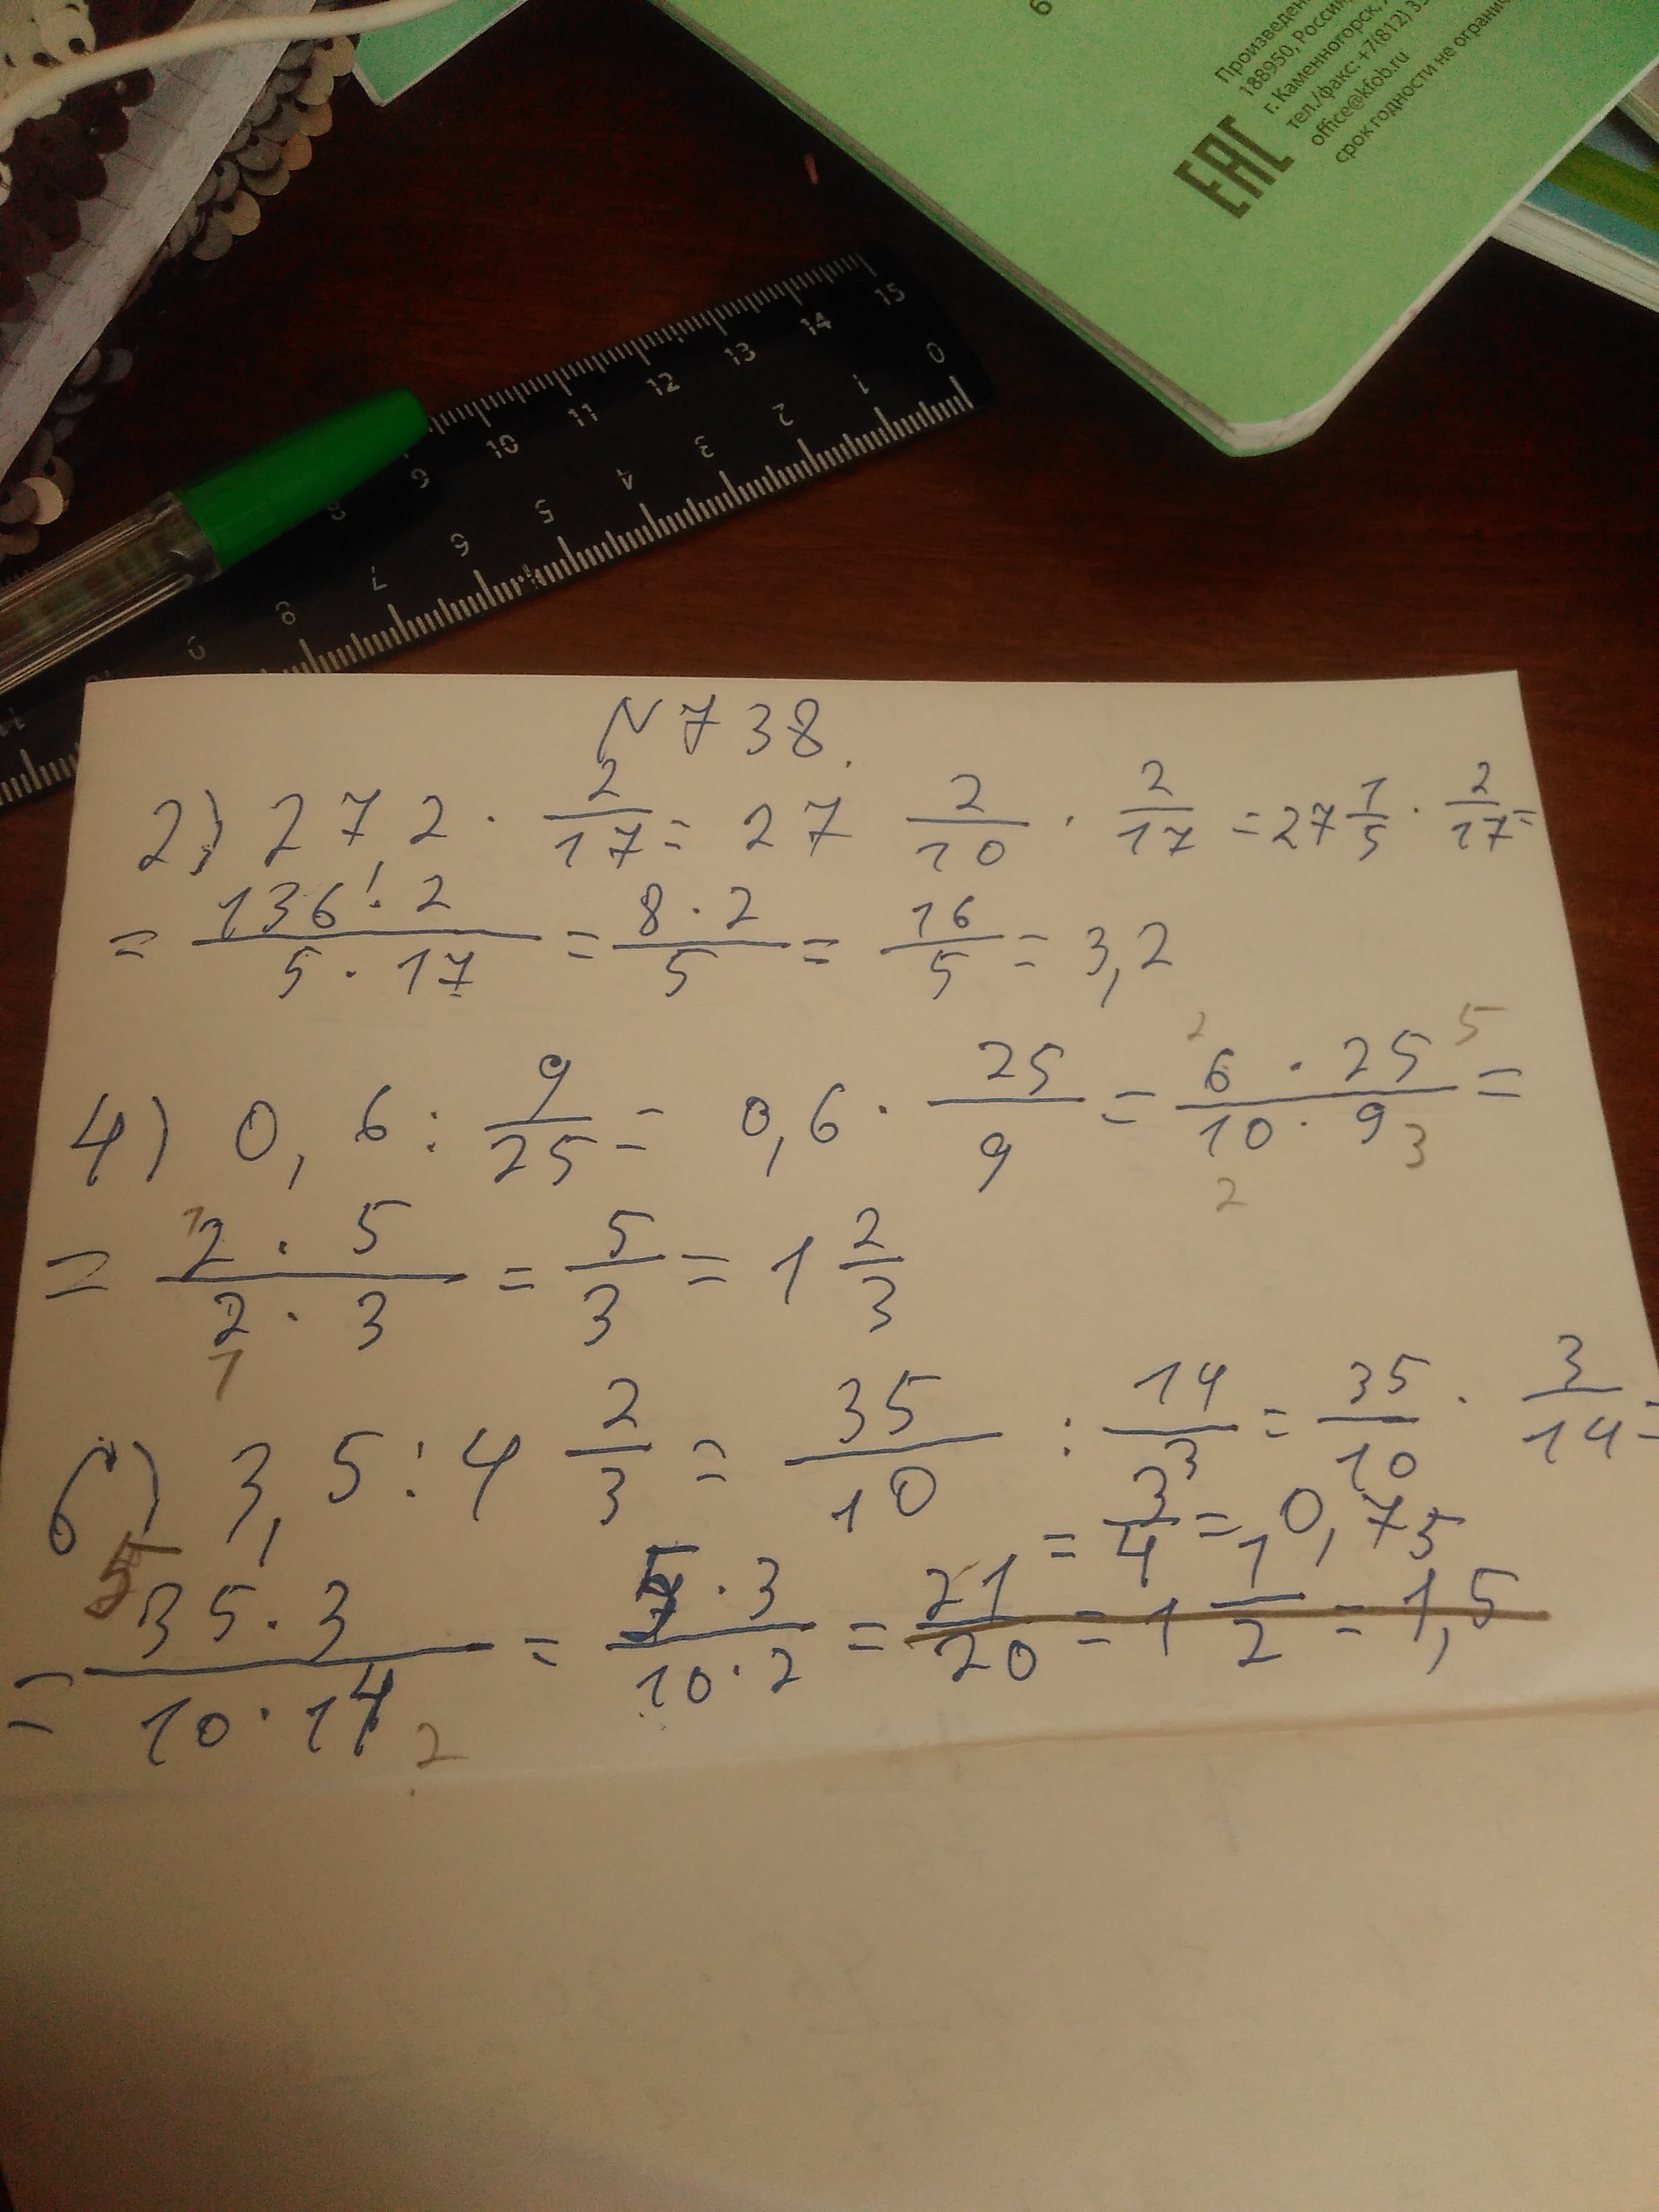 6
Произведен
188950, Россия,
г. Каменногорск,
тел./факс: +7(812) 3
office@kfob.ru
срок годности не ограни
EAC
15 14 13 12 11 10 9 8
0 1 2 3 4 5 6 7 8 9 10 11
N 738.
2) 27,2 · 2/17 = 27 2/10 · 2/17 = 27 1/5 · 2/17 =
= 136 · 2 / 5 · 17 = 8 · 2 / 5 = 16/5 = 3,2
4) 0,6 : 9/25 = 0,6 · 25/9 = 2 6 · 25 5 / 10 2 · 9 3 =
= 1 2 · 5 / 2 1 · 3 = 5/3 = 1 2/3
6) 3,5 : 4 2/3 = 35/10 : 14/3 = 35/10 · 3/14 =
= 5 35 · 3 / 10 · 14 2 = 5 · 3 / 10 · 2 = 21/20 = 1 1/2 = 1,5
= 3/4 = 0,75